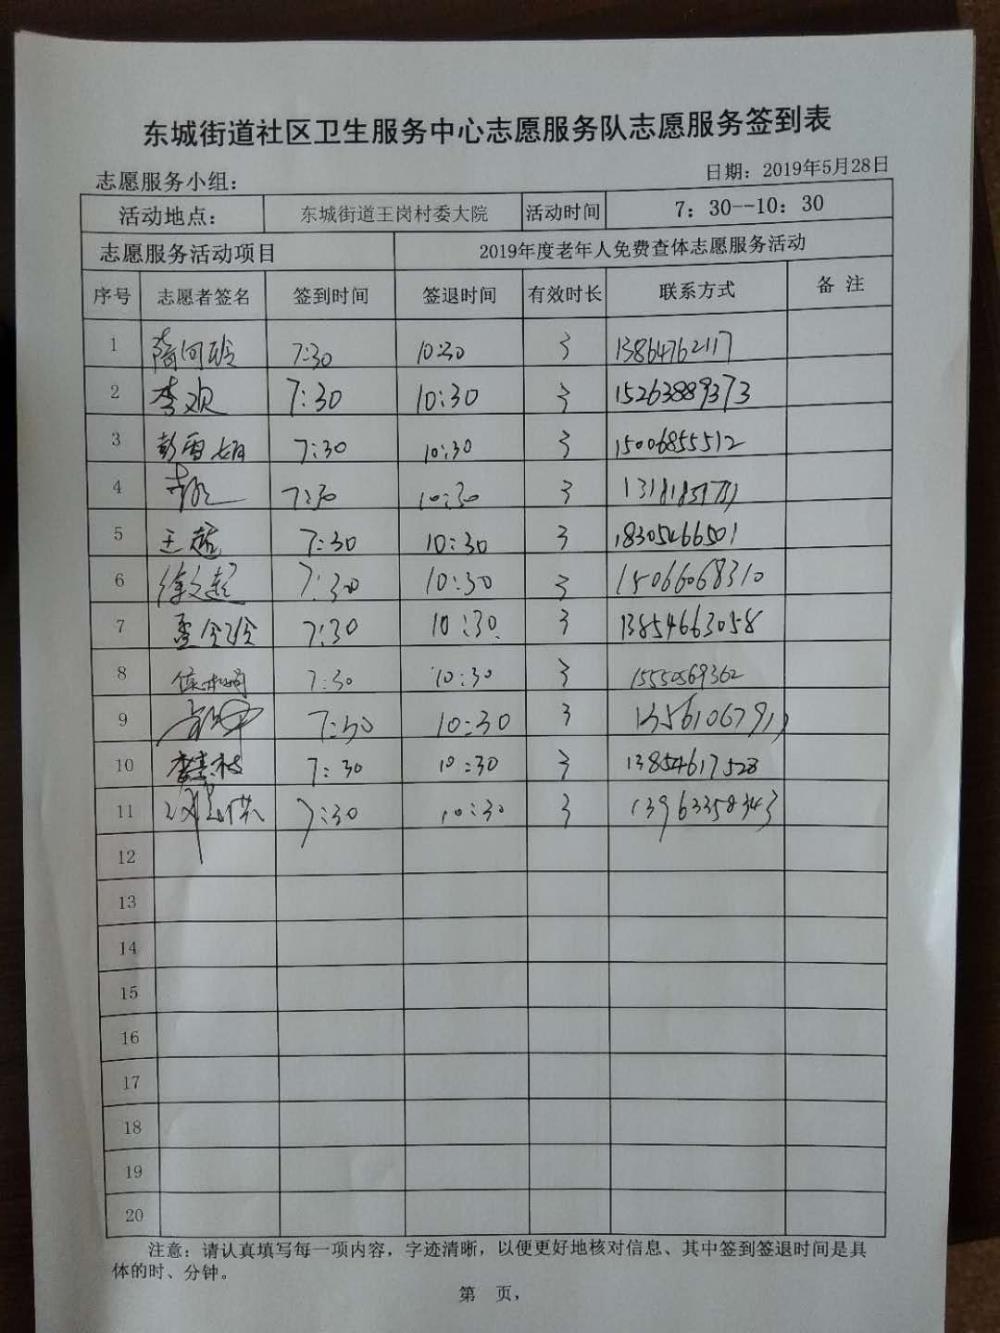 东城街道社区卫生服务中心志愿服务队志愿服务签到表
志愿服务小组： 日期：2019年5月28日
活动地点： 东城街道王岗村委大院 活动时间 7：30--10：30
志愿服务活动项目 2019年度老年人免费查体志愿服务活动
序号 志愿者签名 签到时间 签退时间 有效时长 联系方式 备 注
1 7:30 10:30 3 13864762117
2 李欢 7:30 10:30 3 15263889373
3 彭雪娟 7:30 10:30 3 15006855512
4 7:30 10:30 3
5 王超 7:30 10:30 3 18305466501
6 徐文起 7:30 10:30 3 15066068310
7 7:30 10:30 3 13854663058
8 7:30 10:30 3 15550569362
9 7:30 10:30 3
10 7:30 10:30 3 13854617528
11 7:30 10:30 3 13963358343
12
13
14
15
16
17
18
19
20
注意：请认真填写每一项内容，字迹清晰，以便更好地核对信息、其中签到签退时间是具
体的时、分钟。
第 页，